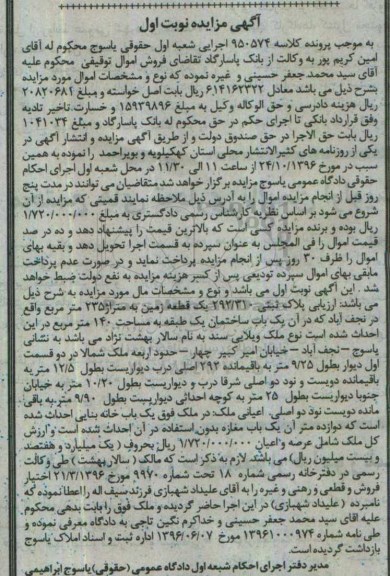 آگهی مزایده نوبت اول
به موجب پرونده کلاسه ۹۵۰۵۷۴ اجرایی شعبه اول حقوقی یاسوج محکوم له آقای
امین کریم پور به وکالت از بانک پاسارگاد تقاضای فروش اموال توقیفی محکوم علیه
آقای سید محمد جعفر حسینی و غیره نموده که نوع و مشخصات اموال مورد مزایده
بشرح ذیل می باشد معادل ۶۱۴۱۶۲۳۲۲ ریال بابت اصل خواسته و مبلغ ۲۰۸۲۰۶۸۱
ریال هزینه دادرسی و حق الوکاله وکیل به مبلغ ۱۵۹۳۹۸۹۶ و خسارت تاخیر تادیه
وفق قرارداد بانکی تا اجرای حکم در حق محکوم له بانک پاسارگاد و مبلغ ۱۰۴۱۰۳۴
ریال بابت حق الاجرا در حق صندوق دولت و از طریق آگهی مزایده و انتشار آگهی در
یکی از روزنامه های کثیرالانتشار محلی استان کهگیلویه و بویراحمد را نموده به همین
سبب در مورخ ۲۴/۱۰/۱۳۹۶ از ساعت ۱۱ الی ۱۱/۳۰ در محل شعبه اول اجرای احکام
حقوقی دادگاه عمومی یاسوج مزایده برگزار خواهد شد متقاضیان می توانند در مدت پنج
روز قبل از انجام مزایده اموال را به آدرس ذیل ملاحظه نمایند قیمتی که مزایده از آن
شروع می شود بر اساس نظریه کارشناس رسمی دادگستری به مبلغ ۱/۷۲۰/۰۰۰/۰۰۰
ریال بوده و برنده مزایده کسی است که بالاترین قیمت را پیشنهاد دهد و ده در صد
قیمت اموال را فی المجلس به عنوان سپرده به قسمت اجرا تحویل دهد و بقیه بهای
اموال را ظرف ۳۰ روز پس از انجام مزایده پرداخت نماید و در صورت عدم پرداخت
مابقی بهای اموال سپرده تودیعی پس از کسر هزینه مزایده به نفع دولت ضبط خواهد
شد. این آگهی نوبت اول می باشد و نوع و مشخصات مال مورد مزایده به شرح ذیل
می باشد: ارزیابی پلاک ثبتی ۲۹۲/۳۱۰ یک قطعه زمین به متراژ ۲۳۵ متر مربع واقع
در نجف آباد که در آن یک باب ساختمان یک طبقه به مساحت ۱۴۰ متر مربع در این
احداث شده است نوع ملک ویلایی سند به نام سالار بهشت نژاد می باشد به نشانی
یاسوج – نجف آباد – خیابان امیر کبیر چهار – حدود اربعه ملک شمالا در دو قسمت
اول دیوار بطول ۹/۲۵ متر به باقیمانده ۲۹۲ اصلی درب دیواریست بطول ۱۲/۵ متر به
باقیمانده دویست و نود دو اصلی شرقا درب و دیواریست بطول ۱۰/۲۰ متر به خیابان
جنوبا دیواریست بطول ۲۵ متر به کوچه احداثی دیواریست بطول ۹/۹۰ متر به باقی
مانده دویست نود دو اصلی. اعیانی ملک: در ملک فوق یک باب خانه بنایی احداث شده
است که دوازده متر آن یک باب مغازه بدون استفاده در آن احداث شده است و ارزش
کل ملک شامل عرصه و اعیان ۱/۷۲۰/۰۰۰/۰۰۰ ریال بحروف (یک میلیارد و هفتصد
و بیست میلیون ریال) می باشد. لازم به ذکر است که مالک (سالار بهشت) طی وکالت
رسمی در دفترخانه رسمی شماره ۱۸ تحت شماره ۹۹۷۰ مورخ ۲۱/۳/۱۳۹۶ اختیار
فروش و قطعی و رهنی و غیره را به آقای علیداد شهبازی فرزند سیف اله را اعطا نموده که
نامبرده (علیداد شهبازی) در این اجرا حاضر گردیده و ملک فوق را بابت بدهی محکوم
علیه آقای سید محمد جعفر حسینی و خداکرم نگین تاجی به دادگاه معرفی نموده و
طی نامه شماره ۱۳۹۶۱۰۰۰۹۷۴ مورخ ۱۳۹۶/۰۶/۰۷ اداره ثبت و اسناد املاک یاسوج
بازداشت گردیده است.
مدیر دفتر اجرای احکام شعبه اول دادگاه عمومی (حقوقی) یاسوج ابراهیمی